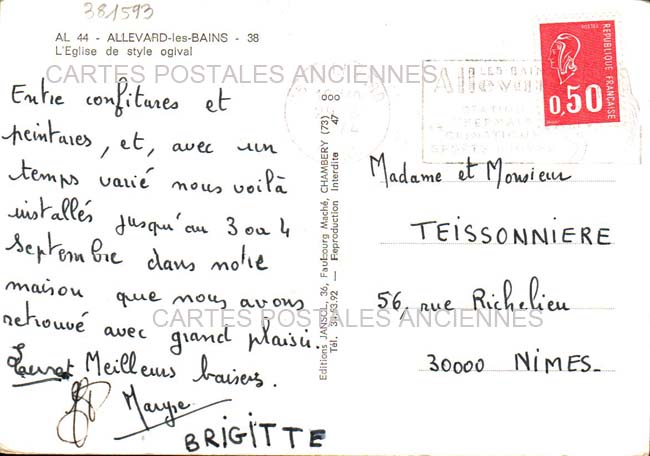 381593
AL 44 - ALLEVARD-les-BAINS - 38
L'Eglise de style ogival
CARTES POSTALES ANCIENNES
Entre confitures et
peintures, et, avec un
temps varié nous voilà
installés jusqu'au 3 ou 4
Septembre dans notre
maison que nous avons
retrouvé avec grand plaisir.
Meilleurs baisers.
BRIGITTE
Editions JANSOL, 36, Faubourg Maché, CHAMBERY (73)
Tél. 34-53.92 — Reproduction Interdite 47
000
REPUBLIQUE FRANÇAISE
POSTES
0,50
Madame et Monsieur
TEISSONNIERE
56, rue Richelieu
30000 NIMES.
CARTES POSTALES ANCIENNES